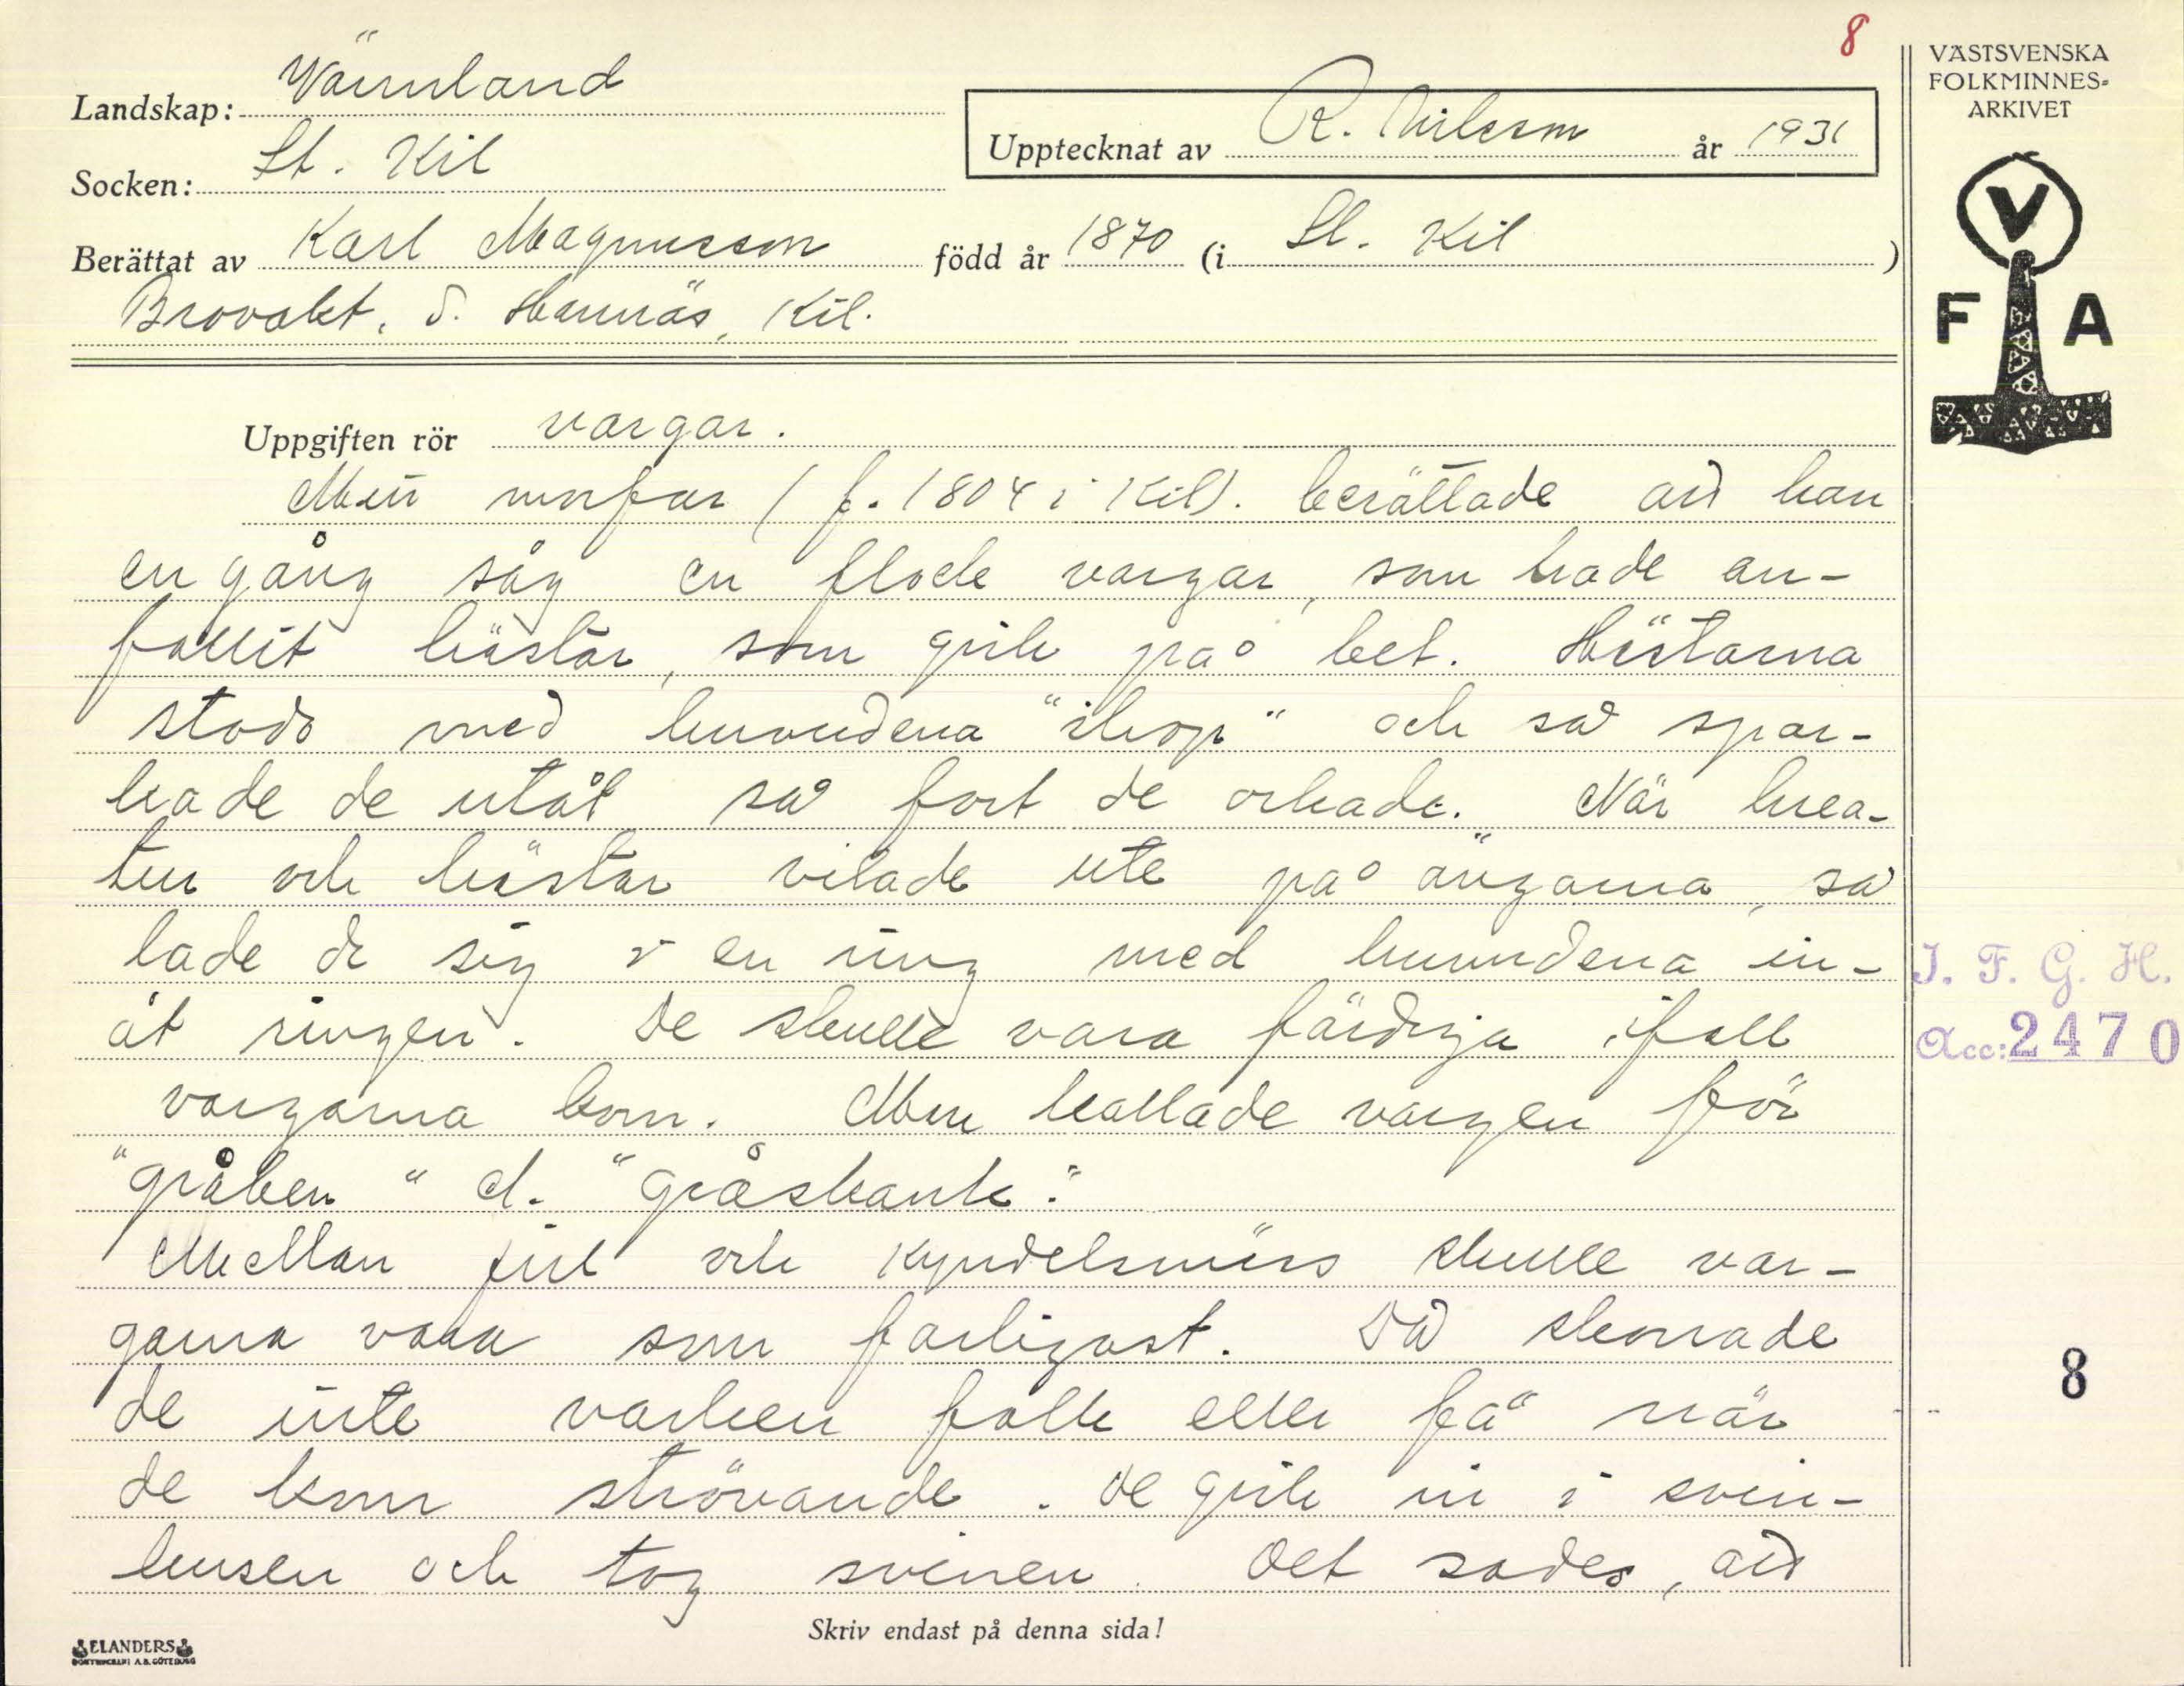 8
Landskap: Värmland
Socken: St. Kil
Upptecknat av R. Nilsson år 1931
Berättat av Karl Magnusson född år 1870 (i St. Kil )
Brovakt, S. Hannäs, Kil.
VÄSTSVENSKA
FOLKMINNES-
ARKIVET
V
F A
Uppgiften rör vargar.
Min morfar (f. 1804 i Kil). berättade att han
en gång såg en flock vargar, som hade an-
fallit hästar, som gick på bet. Hästarna
stodo med huvudena "ihop" och så spar-
kade de utåt så fort de orkade. När krea-
tur och hästar vilade ute på ängarna, så
lade de sig i en ring med huvudena in-
åt ringen. De skulle vara färdiga ifall
vargarna kom. Man kallade vargen för
"gråben" el. "gråskank".
Mellan jul och Kyndelsmäss skulle var-
garna vara som farligast. Då skonade
de inte varken folk eller fä när
de kom strövande. De gick in i svin-
husen och tog svinen. Det sades, att
J. F. G. H.
Acc: 2470
8
Skriv endast på denna sida!
ELANDERS
BOKTRYCKERI A.B. GÖTEBORG